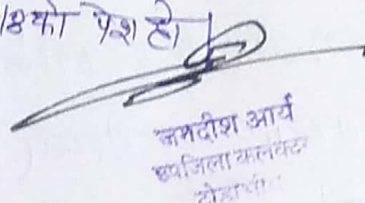 18 को पेश हो
जगदीश आर्य
उपजिला कलक्टर